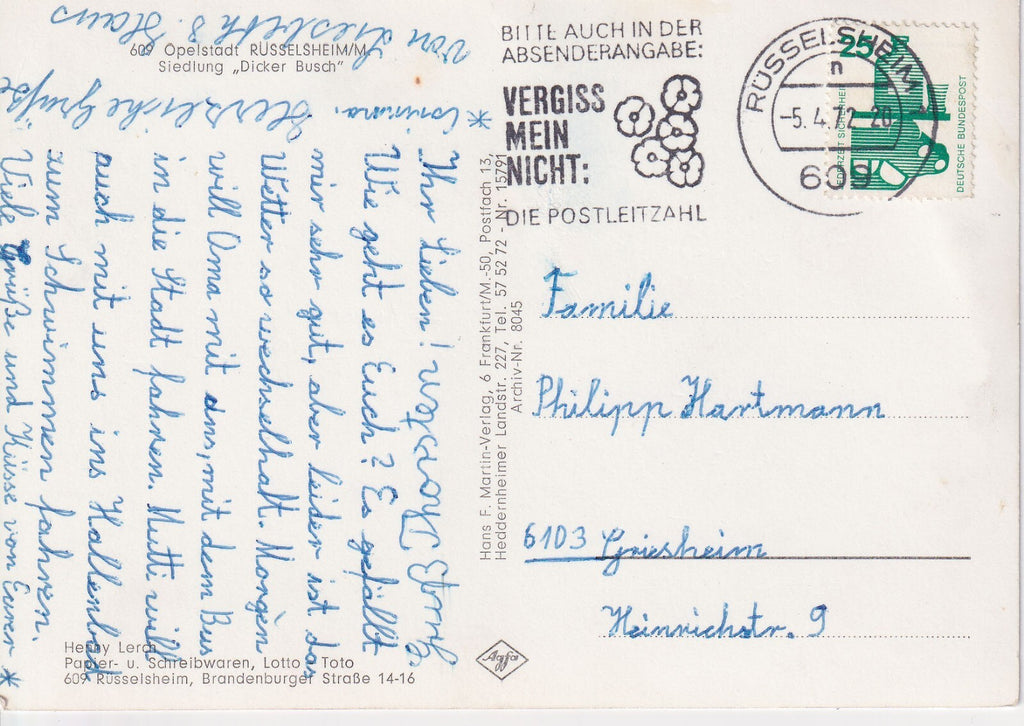 609 Opelstadt RÜSSELSHEIM/M.
Siedlung „Dicker Busch"
BITTE AUCH IN DER
ABSENDERANGABE:
VERGISS
MEIN
NICHT:
DIE POSTLEITZAHL
RÜSSELSHEIM 1
n
-5.4.72-20
609
25
JEDERZEIT SICHERHEIT
DEUTSCHE BUNDESPOST
Ihr Lieben!
Wie geht es Euch? Es gefällt
mir sehr gut, aber leider ist das
Wetter so wechselhaft. Morgen
will Oma mit uns, mit dem Bus
in die Stadt fahren. Mutti will
auch mit uns ins Hallenbad
zum Schwimmen fahren.
Viele Grüße und Küsse von Eurer *
* Corinna. Herzliche Grüße
von Liesbeth & Hans
Hans F. Martin-Verlag, 6 Frankfurt/M.-50, Postfach 13,
Heddernheimer Landstr. 227, Tel. 57 52 72 - Nr. 15791
Archiv-Nr. 8045
Familie
Philipp Hartmann
6103 Griesheim
Heinrichstr. 9
Henny Lerch
Papier- u. Schreibwaren, Lotto - Toto
609 Rüsselsheim, Brandenburger Straße 14-16
Agfa